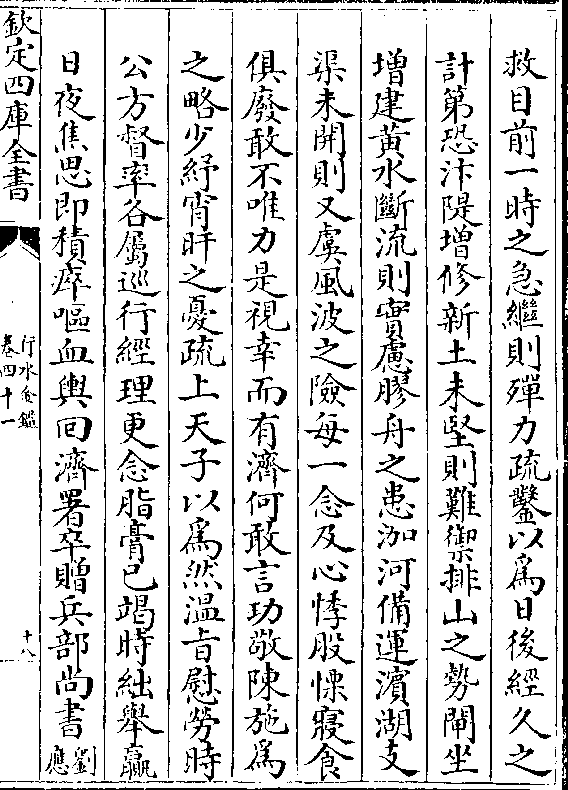 救目前一時之急繼則殫力疏鑿以爲日後經久之
計第恐汴隄增修新土未堅則難禦排山之勢閘坐
增建黃水斷流則實慮膠舟之患泇河備運濱湖支
渠未開則又虞風波之險每一念及心悸股慄寢食
俱廢敢不唯力是視幸而有濟何敢言功敬陳施爲
之略少紓宵旰之憂疏上天子以爲然溫旨慰勞時
公方督率各屬巡行經理更念脂膏已竭時絀舉贏
日夜焦思即積瘁嘔血輿囘濟署卒贈兵部尚書劉應
欽定四庫全書
行水金鑑
卷四十一
十八